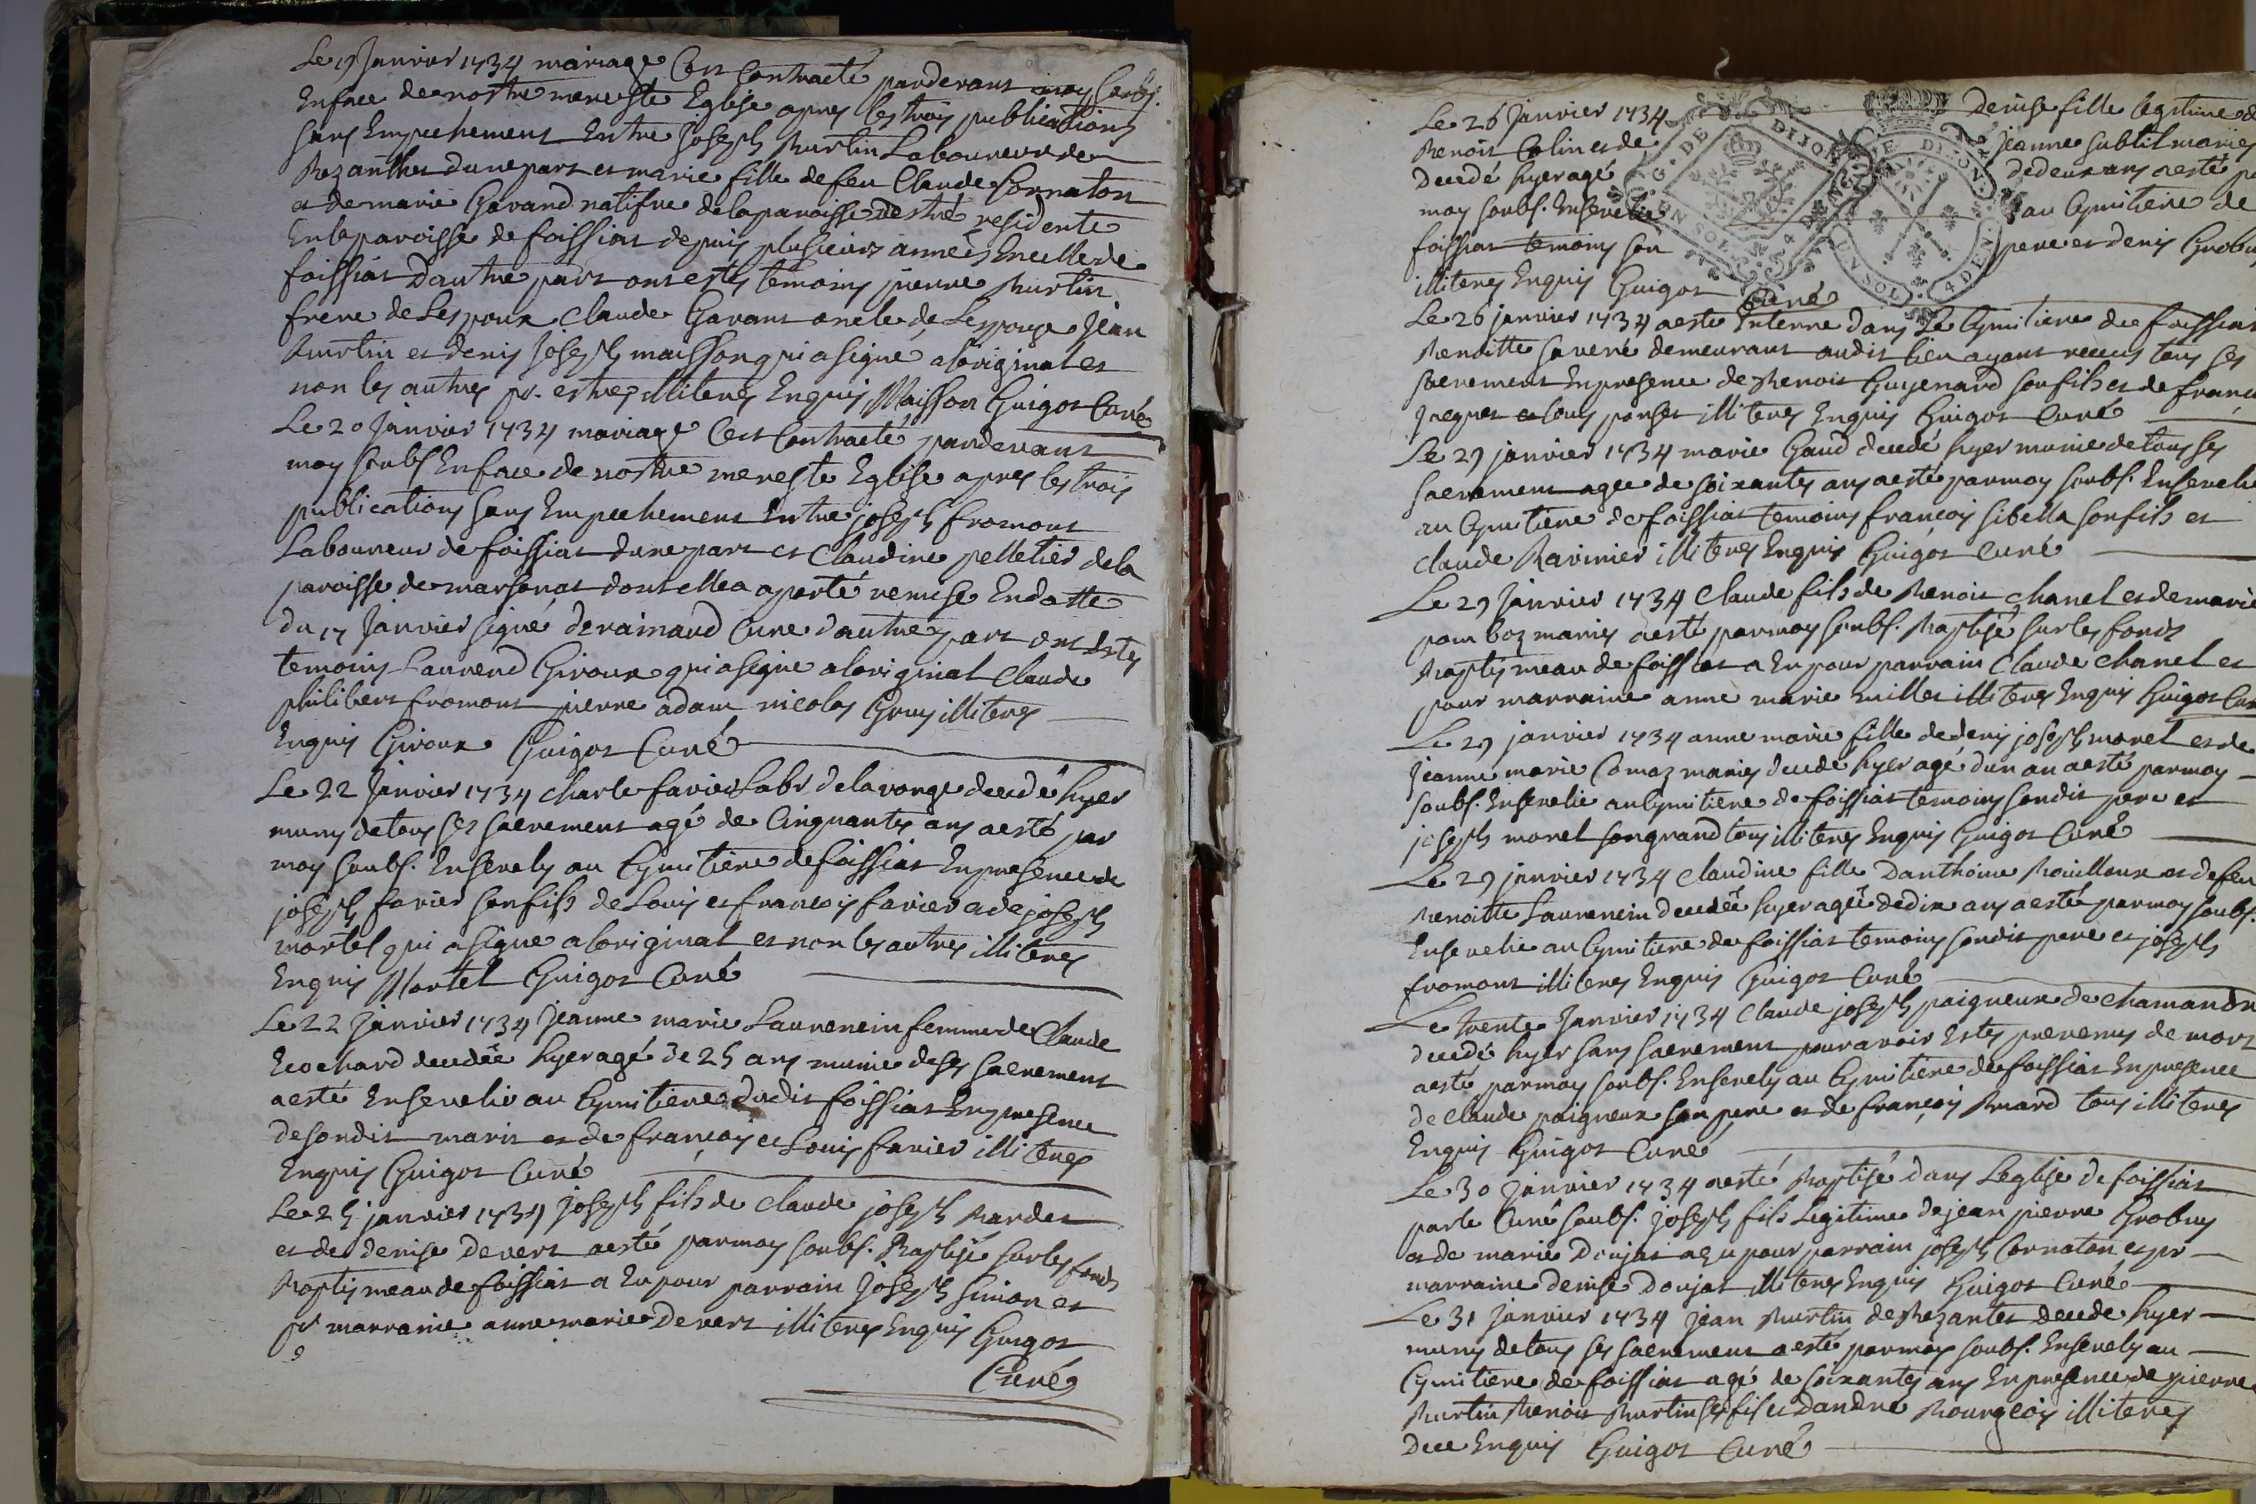 Le 19 Janvier 1734 mariage Cest Contracté pardevant moy soubs.
Enface denostre mereste Eglise apres les trois publications
sans Empechement Entre Joseph Burtin Laboureur de
Bezanthes dune part et marie fille defeu Claude Cornaton
et demarie Gavand natifve delaparoisse destré residente
Enlaparoisse de foissiat depuis plusieurs années Encellede
foissiat Dautre part ont estés temoins pierre Burtin
frere de Lespoux Claude Gavant oncle de Lespouse Jean
Burtin et denis Joseph maisson quiasigné aloriginal et
non les autres pr. estres illiteres Enquis Maisson Guigot Curé
Le 20 Janvier 1734 mariage Cest Contracté pardevant
moy soubs Enface de nostre mereste Eglise apres les trois
publications sans Empechement Entre joseph fromont
Laboureur de foissiat dune part et Claudine pelletier dela
paroisse de marsonat dont ellea aporté remise Endatte
du 17 Janvier signé derainaud Cure dautre part ont Estes
temoins Laurend Giroux quiasigné aloriginal Claude
philibert fromont pierre adam nicolas Gruy illiteres
Enquis Giroux Guigot Curé
Le 22 Janvier 1734 charle favier Labr. delavonge decedé hyer
muny detous ses sacrement agé de Cinquante ans aesté par
moy soubs. Ensevely au Cymitiere de foissiat Enpresencede
joseph favier sonfils de Louis et francois favier ade joseph
mortel qui asigné aloriginal et non les autres illiteres
Enquis Mortel Guigot Curé
Le 22 janvier 1734 Jeanne marie Laurencin femme de Claude
Ecochard decedée hyer agé de 25 ans munie deses sacrement
aesté Ensevelie au Cymitiere dudit foissiat Enpresence
desondit marit et de françois et Louis favier illiteres
Enquis Guigot Curé
Le 25 janvier 1734 joseph fils de Claude joseph Bardet
et de denise devert aesté parmoy soubs. Baptisé surles fonds
Baptismeaux de foissiat a Eupour parrain Joseph simon et
pr marraine anne marie devert illiteres Enquis Guigot
Curé
Le 26 Janvier 1734 Denise fille legitime de
Benoit Colin et de jeanne subtil mariés
decedé hyer agé dedeux ans aesté par
moy soubs. Ensevelie au Cymitiere de
foissiat temoins son pere et denis Grobuy
illiteres Enquis Guigot Curé
Le 26 janvier 1734 aesté Enterré dans Le Cymitiere de foissiat
Benoitte saveré demeurant audit lieu ayant receus tous ses
sacrement Enpresence de Benoit Guyenard sonfils et de franc
jacquet et Louis ponset illiteres Enquis Guigot Curé
Le 29 janvier 1734 marie Gaud decedé hyer munie detous ses
sacrement agée de soixante ans aesté parmoy soubs. Ensevelie
au Cymitiere de foissiat temoins françois sibella sonfils et
claude Ravinier illiteres Enquis Guigot Curé
Le 29 janvier 1734 Claude fils de Benoit chanel et demarie
pomboz mariés aesté parmoy soubs. Baptisé surles fonds
Baptismeaux de foissiat a Eu pour parrain Claude chanel et
pour marraine anne marie millet illiteres Enquis Guigot Curé
Le 29 janvier 1734 anne marie fille dedenis joseph morel et de
Jeanne marie Comaz mariés decedé hyer agé dun an aesté parmoy
soubs. Ensevelie au Cymitiere de foissiat temoins sondit pere et
joseph morel songrand tous illiteres Enquis Guigot Curé
Le 29 janvier 1734 Claudine fille Danthoine Rouilloux et defeu
Benoitte Laurencin decedée hyer agée dedix ans aesté parmoy soubs.
Ensevelie au Cymitiere de foissiat temoins sondit pere et joseph
fromont illiteres Enquis Guigot Curé
Le trente Janvier 1734 Claude joseph paigneux de chamandr
decedé hyer sans sacrement pouravoir Estes prevenus de mort
aesté parmoy soubs. Ensevely au Cymitiere de foissiat Enpresence
de Claude paigneux son pere et de françois Buard tous illiteres
Enquis Guigot Curé
Le 30 Janvier 1734 aesté Baptisé dans Leglise de foissiat
parle Curé soubs. joseph fils Legitime dejean pierre Grobuy
et de marie Doujat aeu pour parrain joseph Cornaton et pr
marraine denise Doujat illiteres Enquis Guigot Curé
Le 31 Janvier 1734 jean Burtin de Bezantes decede hyer
muny detous ses sacrement aesté parmoy soubs. Ensevely au
Cymitiere de foissiat agé de soixante ans Enpresence de pierre
Burtin Benoit Burtin ses fils et dandré Bourgeois illiteres
Dece Enquis Guigot Curé
G. DE DIJON
UN SOL 4 DEN.
G. DE DIJON
UN SOL 4 DEN.